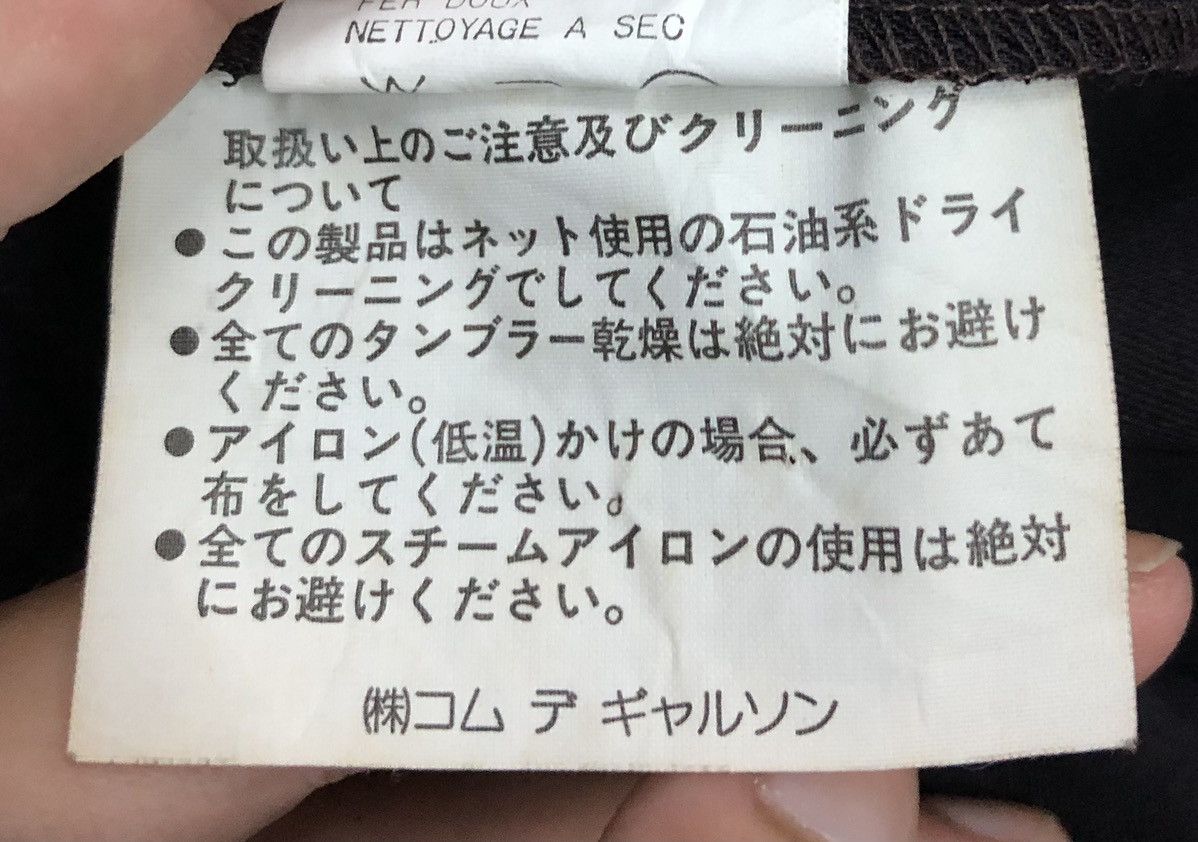 FER DOUX
NETTOYAGE A SEC
取扱い上のご注意及びクリーニング
について
●この製品はネット使用の石油系ドライ
クリーニングでしてください。
●全てのタンブラー乾燥は絶対にお避け
ください。
●アイロン(低温)かけの場合、必ずあて
布をしてください。
●全てのスチームアイロンの使用は絶対
にお避けください。
㈱コム デ ギャルソン